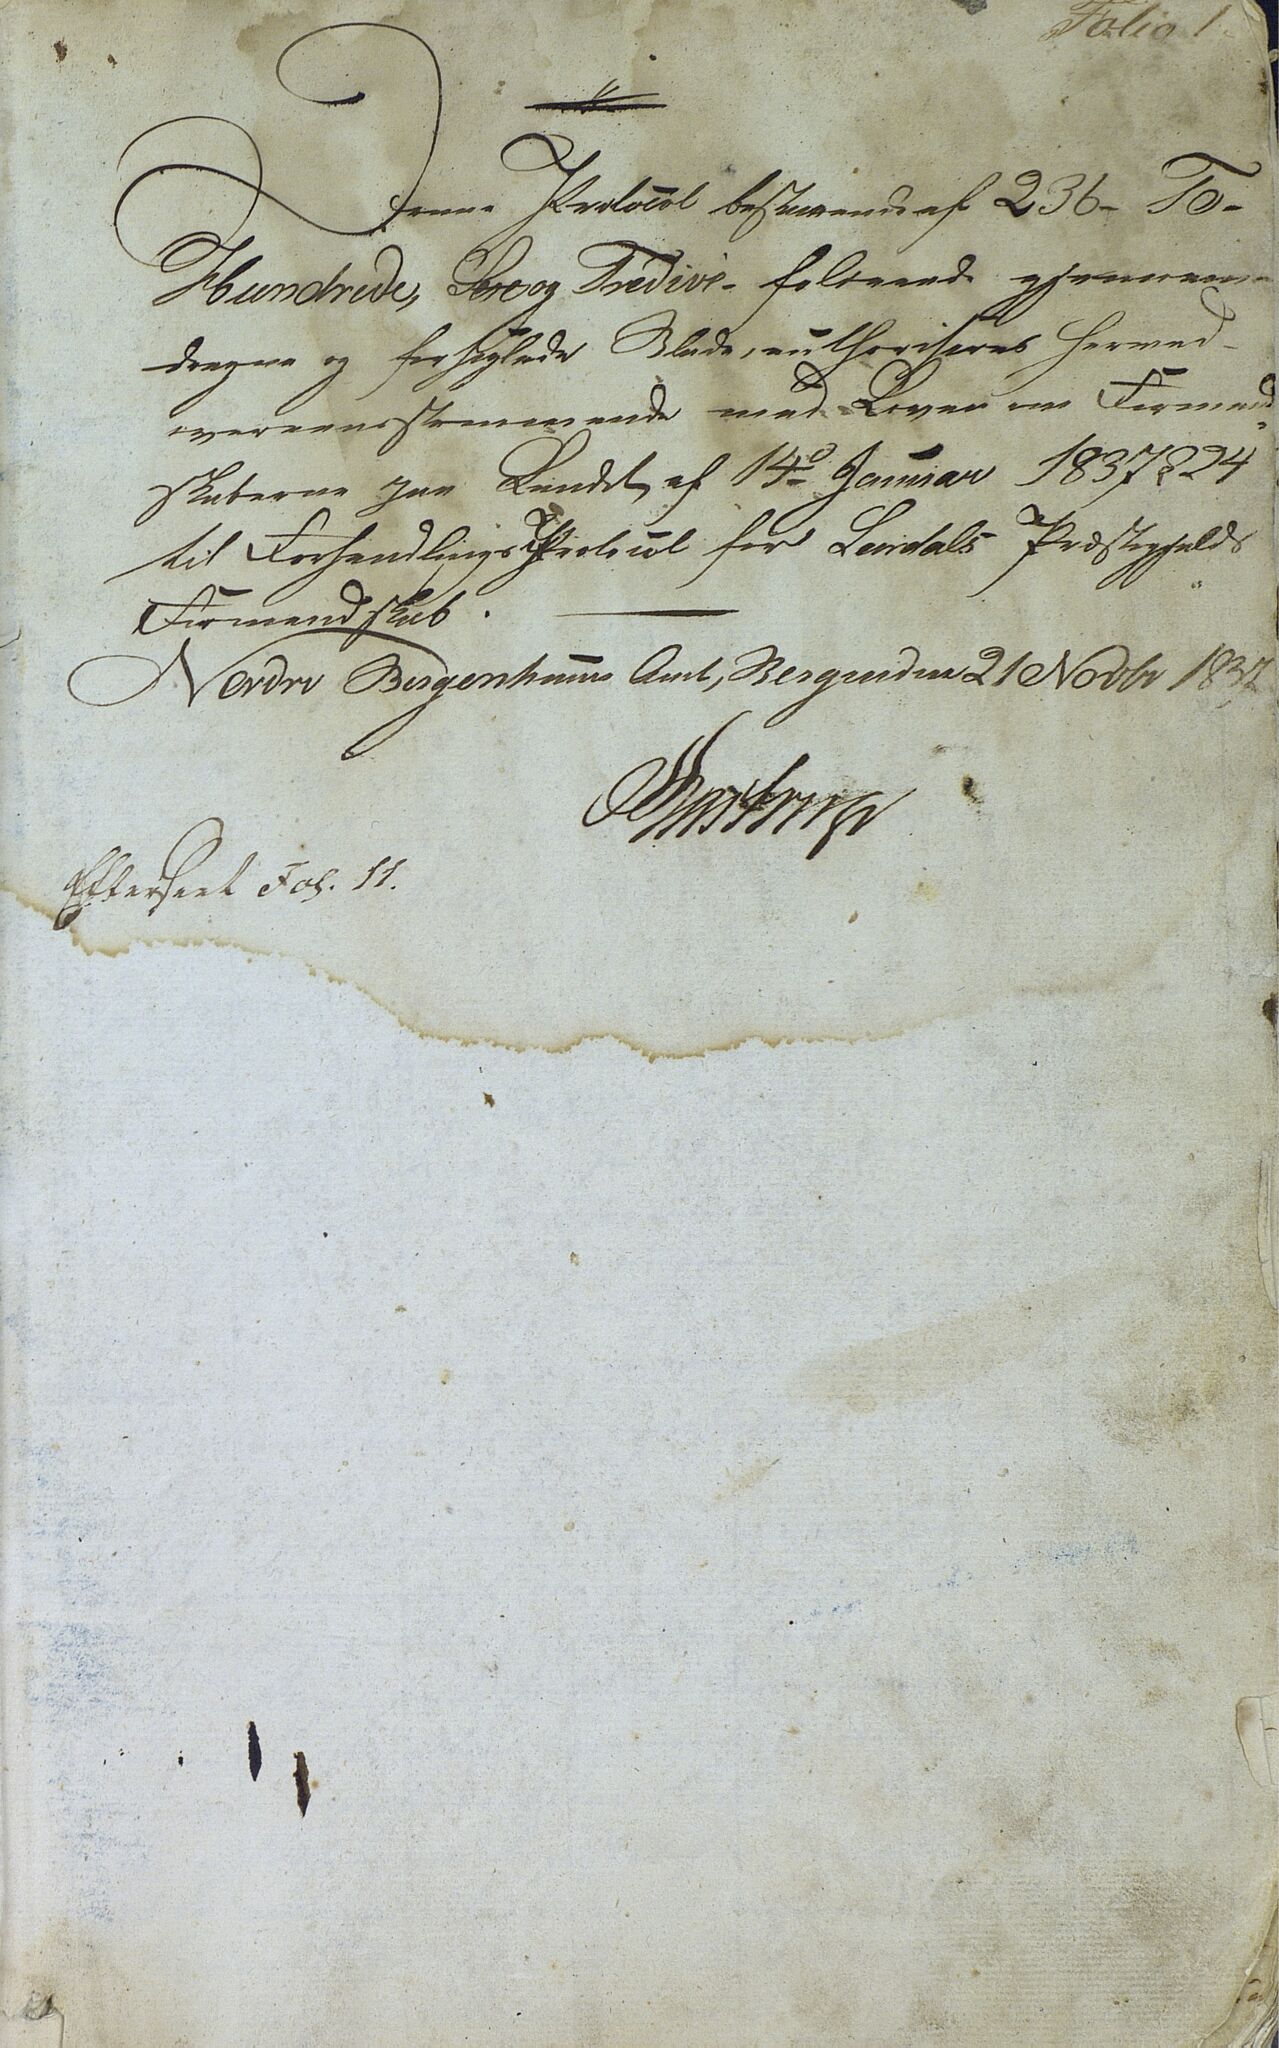 Folio 1.
Denne Protocol bestaaende af 236- To-
Hundrede, Sex og Tredive- folierede gjennem-
dragne og forseglede Blade, authoriseres herved-
overeensstemmende med Loven om Formand-
skaberne paa Landet, af 14de Januar 1837 § 24
til Forhandlings Protocol for Leirdals Præstegjelds
Formandskab.
Nordre Bergenhuus Amt, Bergen den 21 Novbr 1837
Efterseet Fol. 11.